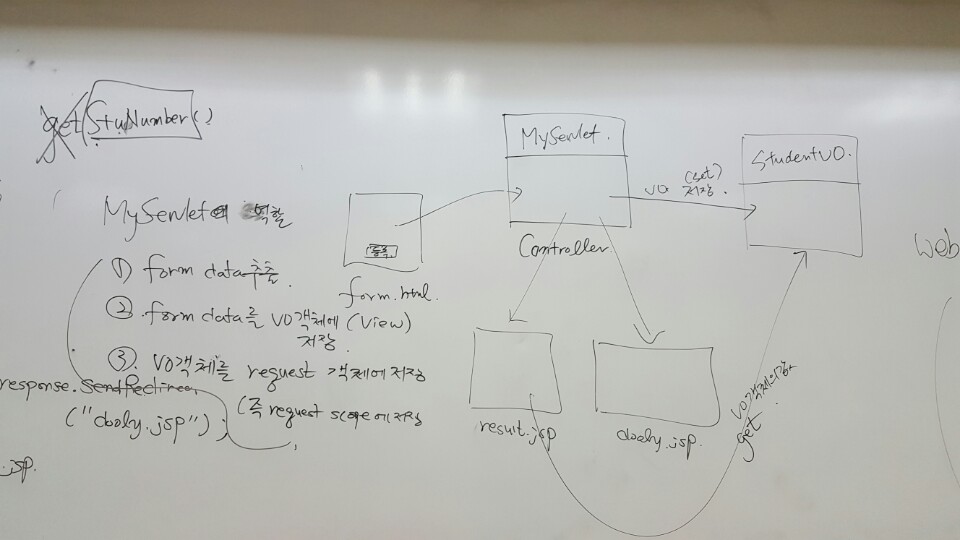 get StuNumber()
MySevlet의 역할
① form data 추출.
② form data를 VO객체에
저장.
③ VO객체를 request 객체에 저장
(즉 request scope에 저장
response.sendRedirec
("dooly.jsp");
.jsp.
등록
form.html.
(View)
MySevlet.
Controller
VO (set)
저장.
StudentVO.
result.jsp
dooly.jsp.
VO객체의 값
get
Web